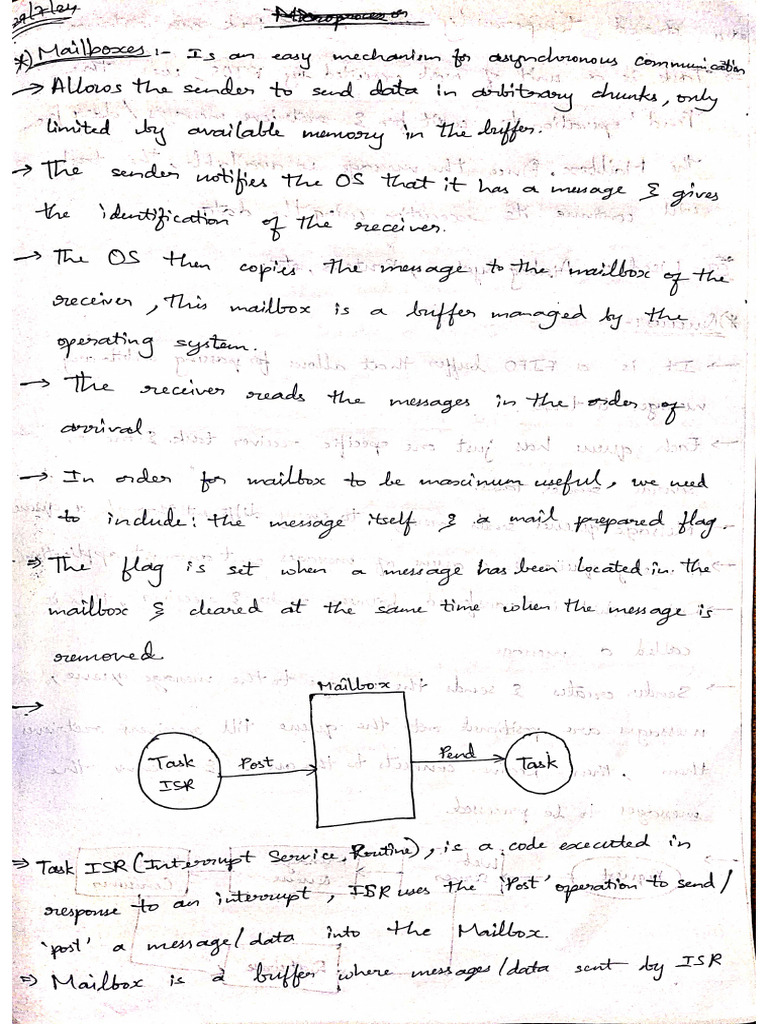 29/7/24
Microprocessor
*) Mailboxes :- Is an easy mechanism for asynchronous communication
→ Allows the sender to send data in arbitrary chunks, only
limited by available memory in the buffer.
→ The sender notifies the OS that it has a message & gives
the identification of the receiver.
→ The OS then copies the message to the mailbox of the
receiver, this mailbox is a buffer managed by the
operating system.
→ The receiver reads the messages in the order of
arrival.
→ In order for mailbox to be maximum useful, we need
to include: the message itself & a mail prepared flag.
⇒ The flag is set when a message has been located in the
mailbox & cleared at the same time when the message is
removed
→ Mailbox
Task
ISR
Post
Pend
Task
⇒ Task ISR (Interrupt Service Routine), is a code executed in
response to an interrupt, ISR uses the 'Post' operation to send/
'post' a message/data into the Mailbox.
⇒ Mailbox is a buffer where messages/data sent by ISR